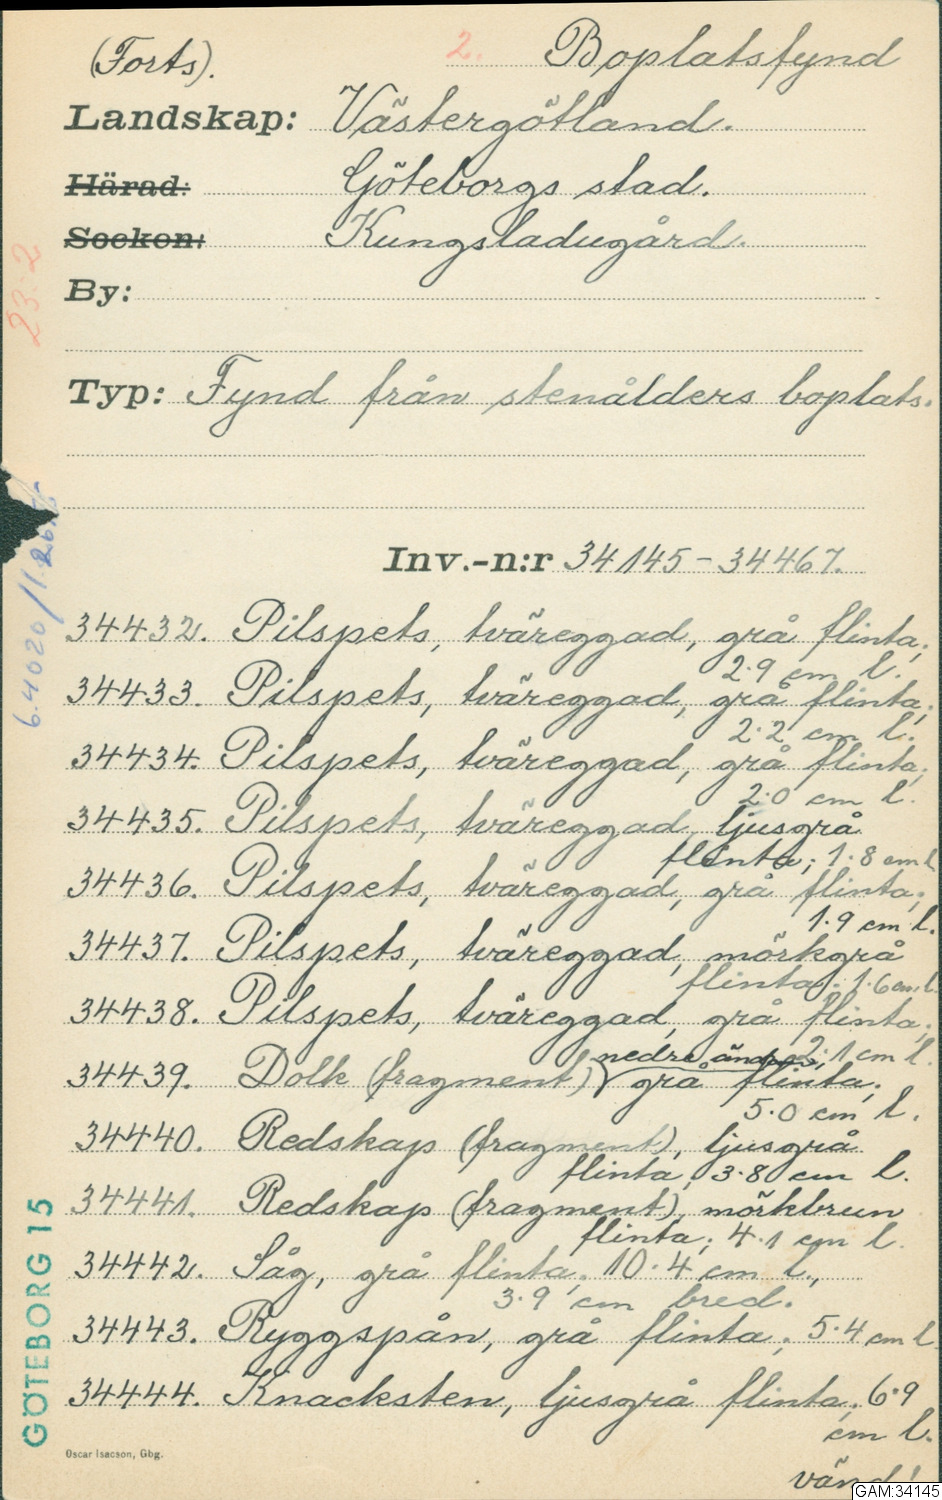 (Forts).
2. Boplatsfynd
Landskap: Västergötland.
Härad: Göteborgs stad.
Socken: Kungsladugård.
By:
23:2
Typ: Fynd från stenålders boplats.
Inv.-n:r 34145-34467.
34432. Pilspets, tväreggad, grå flinta;
2.9 cm l.
34433. Pilspets, tväreggad, grå flinta;
2.2 cm l.
34434. Pilspets, tväreggad, grå flinta;
2.0 cm l.
34435. Pilspets, tväreggad, ljusgrå
flinta; 1.8 cm l
34436. Pilspets, tväreggad, grå flinta;
1.9 cm l.
34437. Pilspets, tväreggad, mörkgrå
flinta; 1.6 cm l.
34438. Pilspets, tväreggad, grå flinta;
2.1 cm l.
nedre ändan,
34439. Dolk (fragment) grå flinta;
5.0 cm l.
34440. Redskap (fragment), ljusgrå
flinta, 3.8 cm l.
34441. Redskap (fragment), mörkbrun
flinta; 4.1 cm l.
34442. Såg, grå flinta; 10.4 cm l.,
3.9 cm bred.
34443. Ryggspån, grå flinta; 5.4 cm l
34444. Knacksten, ljusgrå flinta; 6.9
cm l.
vänd!
GÖTEBORG 15
Oscar Isacson, Gbg.
GAM:34145